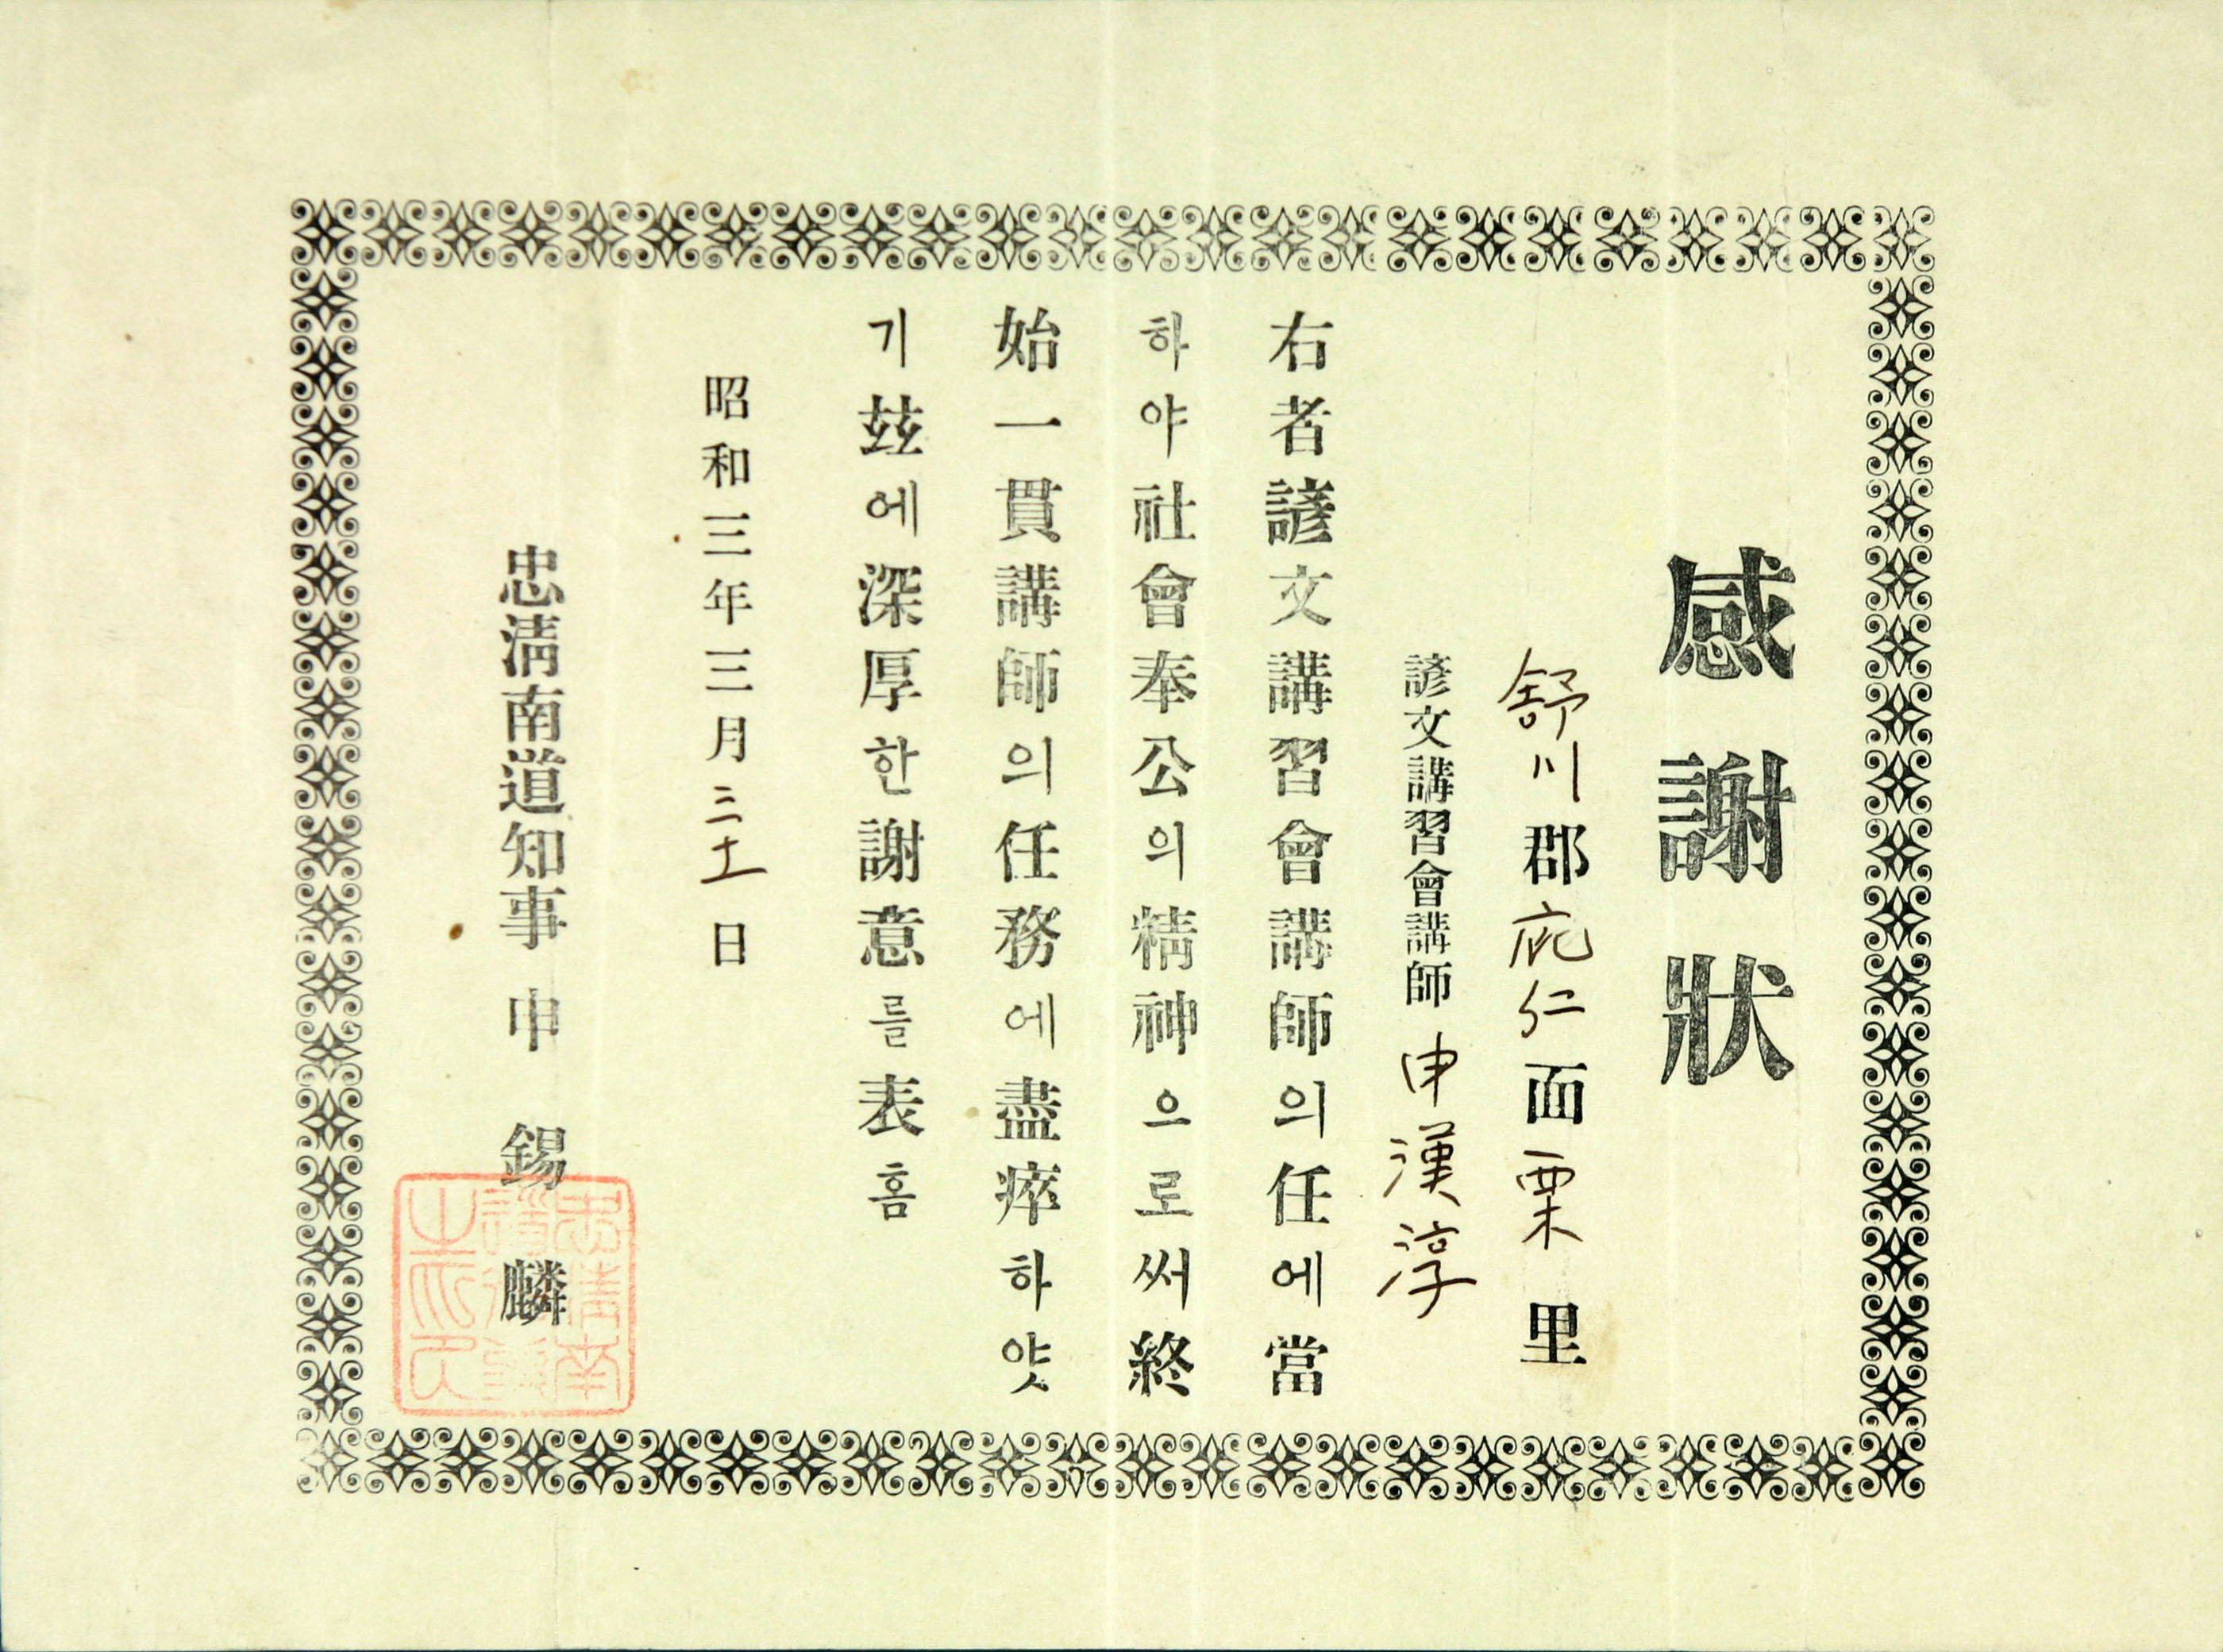 感謝狀
舒川郡庇仁面栗里
諺文講習會講師 申漢淳
右者諺文講習會講師의任에當
하야社會奉公의精神으로써終
始一貫講師의任務에盡瘁하얏
기玆에深厚한謝意를表홈
昭和三年三月三十一日
忠淸南道知事 申錫麟
忠淸南
道知事
之印